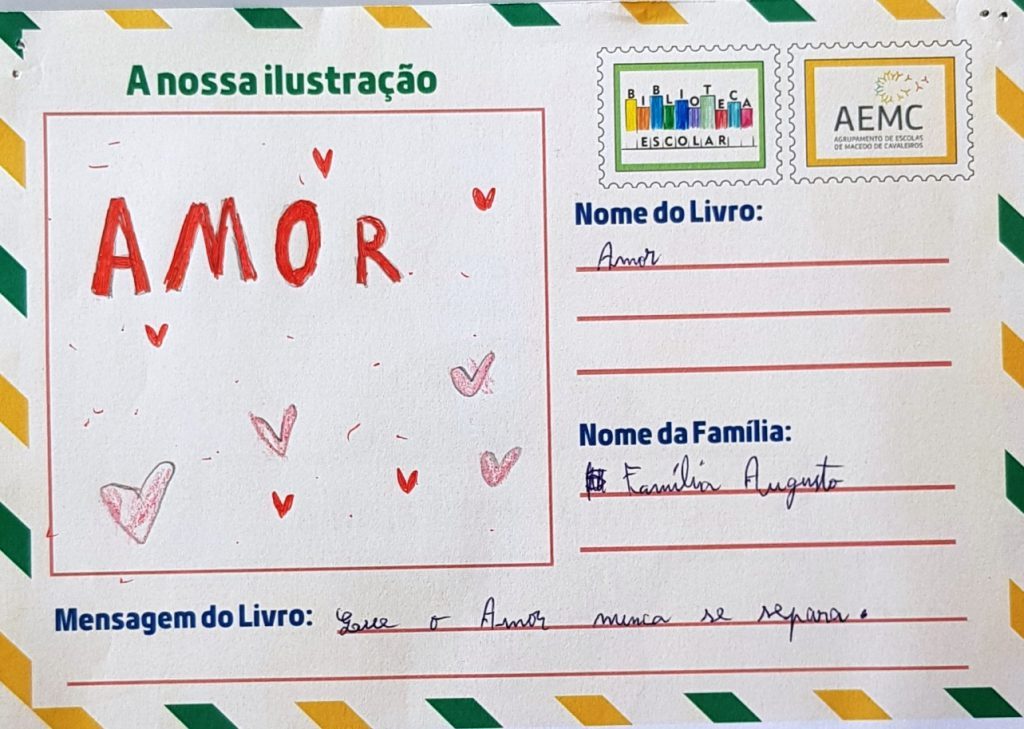 A nossa ilustração
AMOR
BIBLIOTECA
ESCOLAR
AEMC
AGRUPAMENTO DE ESCOLAS
DE MACEDO DE CAVALEIROS
Nome do Livro:
Amor
Nome da Família:
Família Augusto
Mensagem do Livro: Que o Amor nunca se separa.